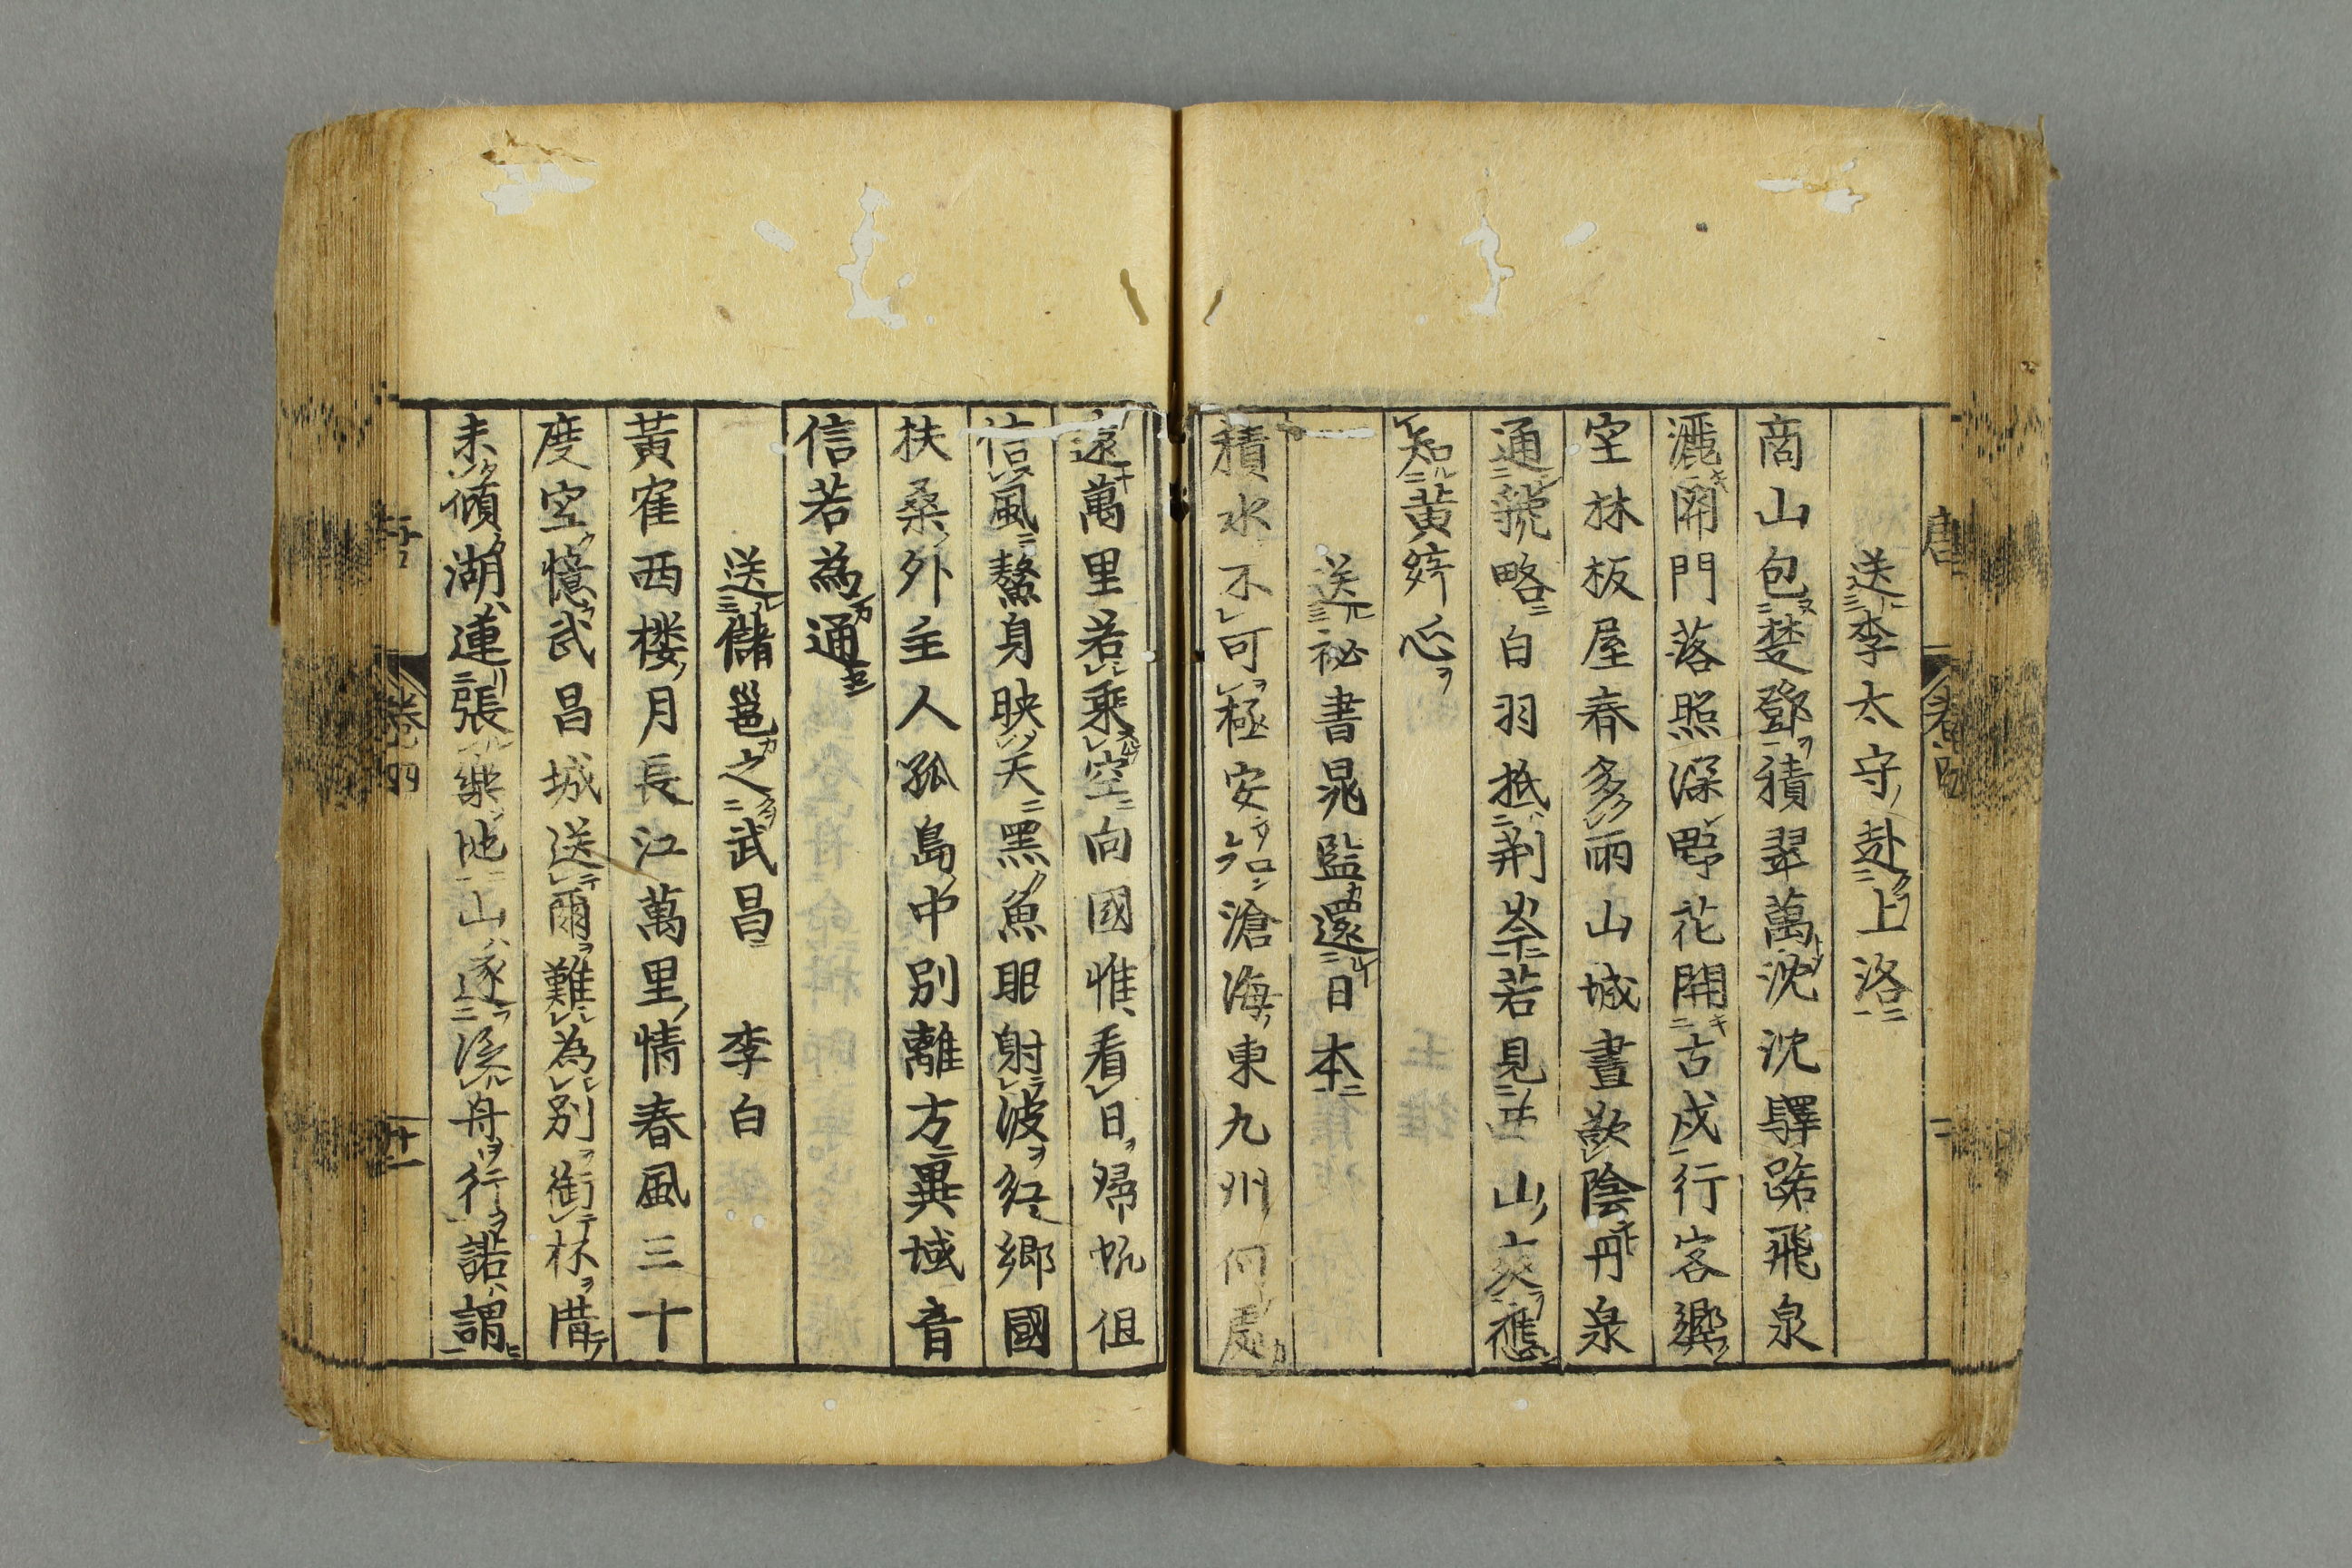 送李太守赴上洛
商山包楚鄧積翠萬沈沈驛路飛泉
灑關門落照深野花開古戍行客響
空林板屋春多雨山城晝欲陰丹泉
通虢略白羽抵荊岑若見西山爽應
知黃綺心
送祕書晁監還日本
積水不可極安知滄海東九州何處
遠萬里若乘空向國惟看日歸帆但
信風鰲身映天黑魚眼射波紅鄉國
扶桑外主人孤島中別離方異域音
信若為通
送儲邕之武昌 李白
黃寉西楼月長江萬里情春風三十
度空憶武昌城送爾難為別銜杯惜
未傾湖連張樂地山逐泛舟行諾謂
卷四
廿一